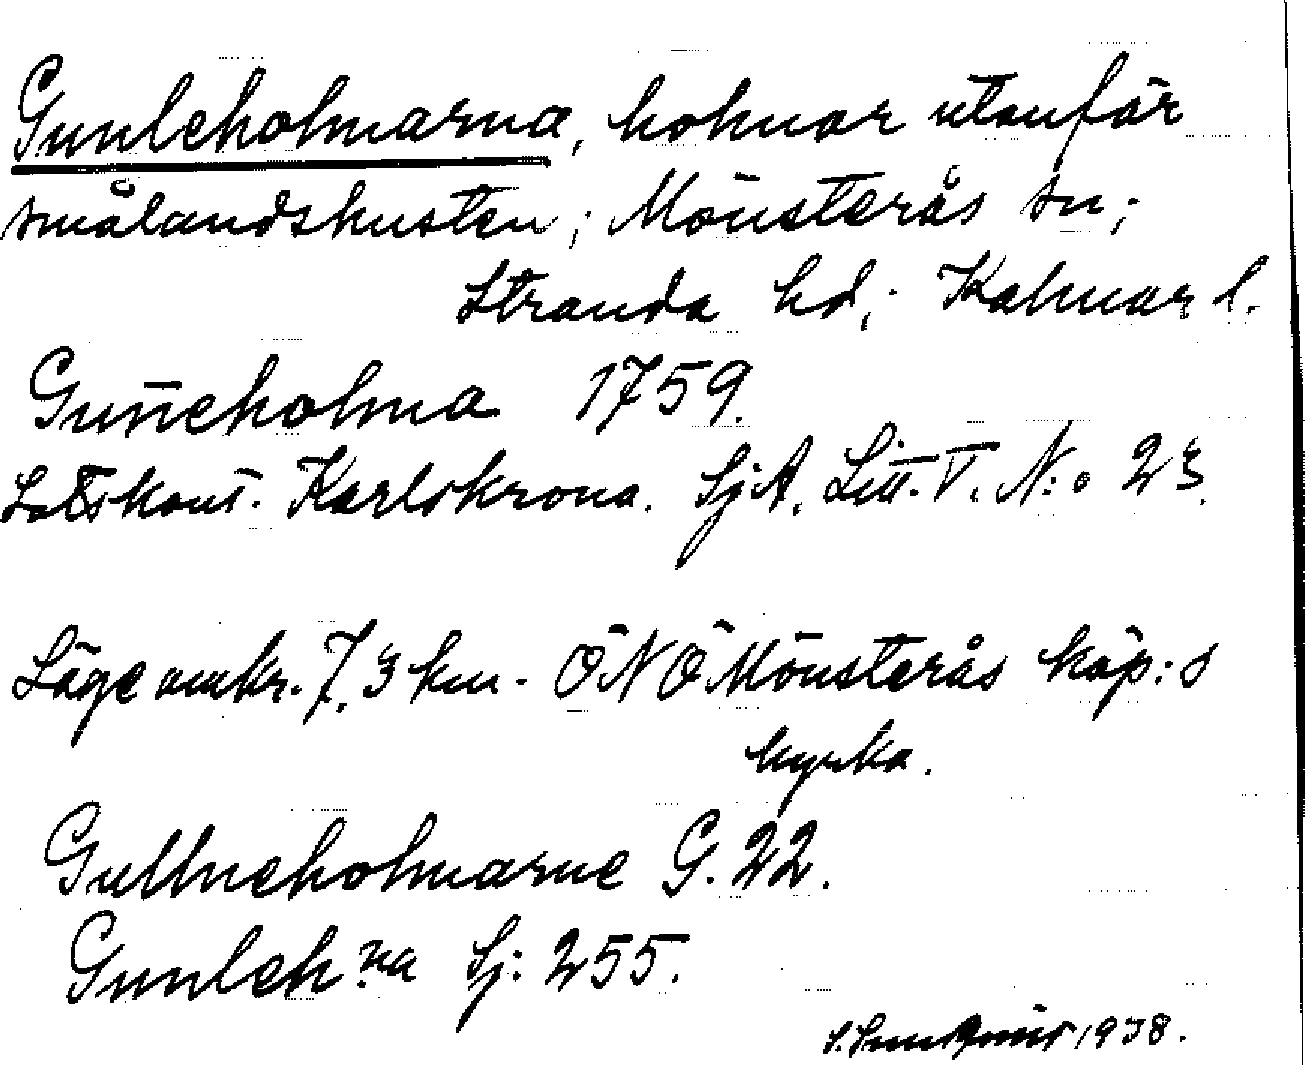 Gunleholmarna, holmar utanför
smålandskusten; Mönsterås sn;
Stranda hd; Kalmar l.
Guñeholma 1759.
Lotskont. Karlskrona. SjA. Litt. V. N:o 23.
Läge omkr. 7,3 km. ÖNÖ Mönsterås köp:s
kyrka.
Gullneholmarne G. 22.
Gunleh:na Sj: 255.
1938.